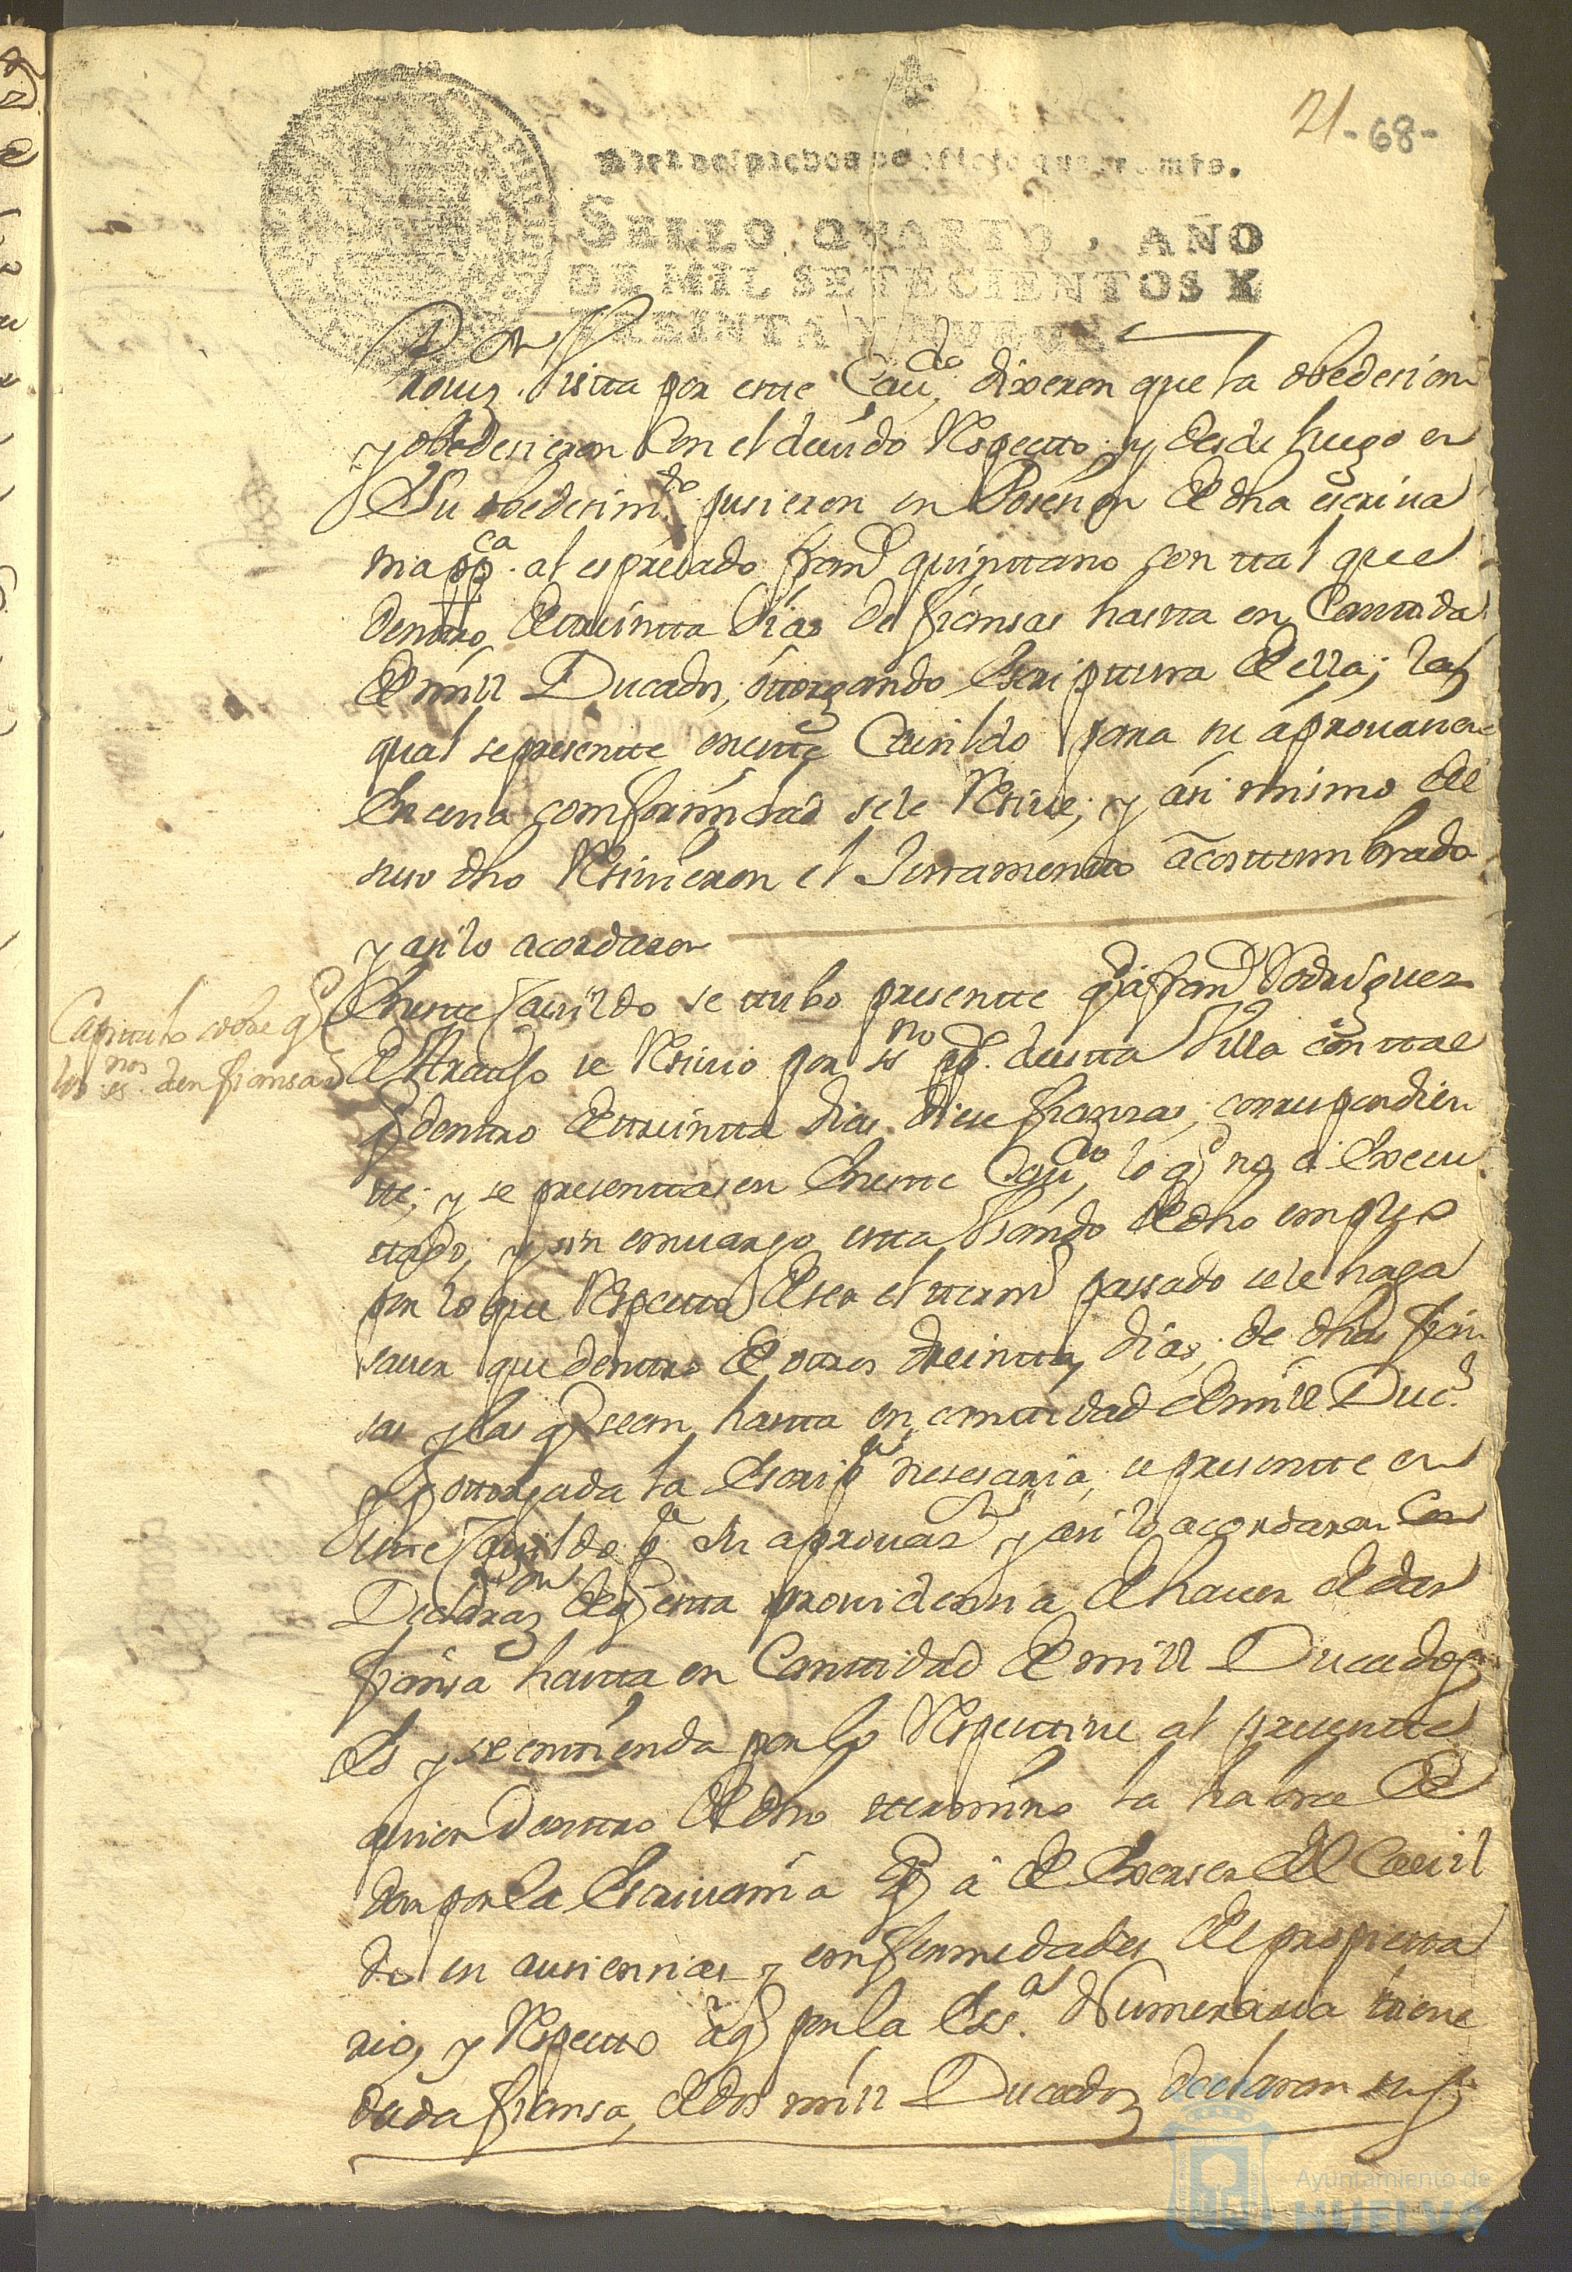 21 - 68 -
Para despachos de oficio quatro mrs.
SELLO QVARTO, AÑO
DE MIL SETECIENTOS Y
TREINTA Y NUEVE
vista por este Cauº. dixeron que la obedesian
y obedesieron con el deuido Respecto, y desde luego en
Su obedesimto. pusieron en Posesion de dha escriua
nia ppca. al espresado franº quinttano con ttal que
denttro de ttreintta dias de fiansas hastta en Canttida
de mill Ducados, ottorgando Escripttura de ella; la
qual se presentte en estte Cauildo para su aprouasion
En cuia comformidad se le Resiue; y asi mismo del
suso dho Resiuieron el Juramentto acosttumbrado
y asi lo acordaron
Capittulo sobre q
los esnos. den fiansas
En estte Cauildo se ttubo presentte q a franº Rodriguez
de Araujo se Resiuio por esno pp. de estta Villa con ttal
q denttro de ttreintta dias diese fiansas, correspondien
tte; y se presenttasen En estte Cauº, lo q no a Execu
ttado, y sin emuargo estta Usando de dho empleo
por lo que Respectto de ser el ttermº passado se le haga
sauer que denttro de ottros treintta dias, de dhas fian
sas y las q sean hastta en canttidad de mill Ducs.
y ottorgada la Escripa nesesaria, se presentte en
estte Cauildo pa su aprouasn y asi lo acordaron Con
Declarazon de q estta prouidensia de hauer de dar
fiansa hastta en Canttidad de mill Ducados
Es y se enttienda por lo Respecttiue al presentte
quien denttro de dho ttermino la ha de
dar por la Escriuania q a de Exerser del Cauil
do en ausiensias y enfermedades del propietta
rio, y Respectto a q por la Essa. Numeraria ttiene
dada fiansa, de dos mill Ducados declaran
Ayuntamiento de
HUELVA